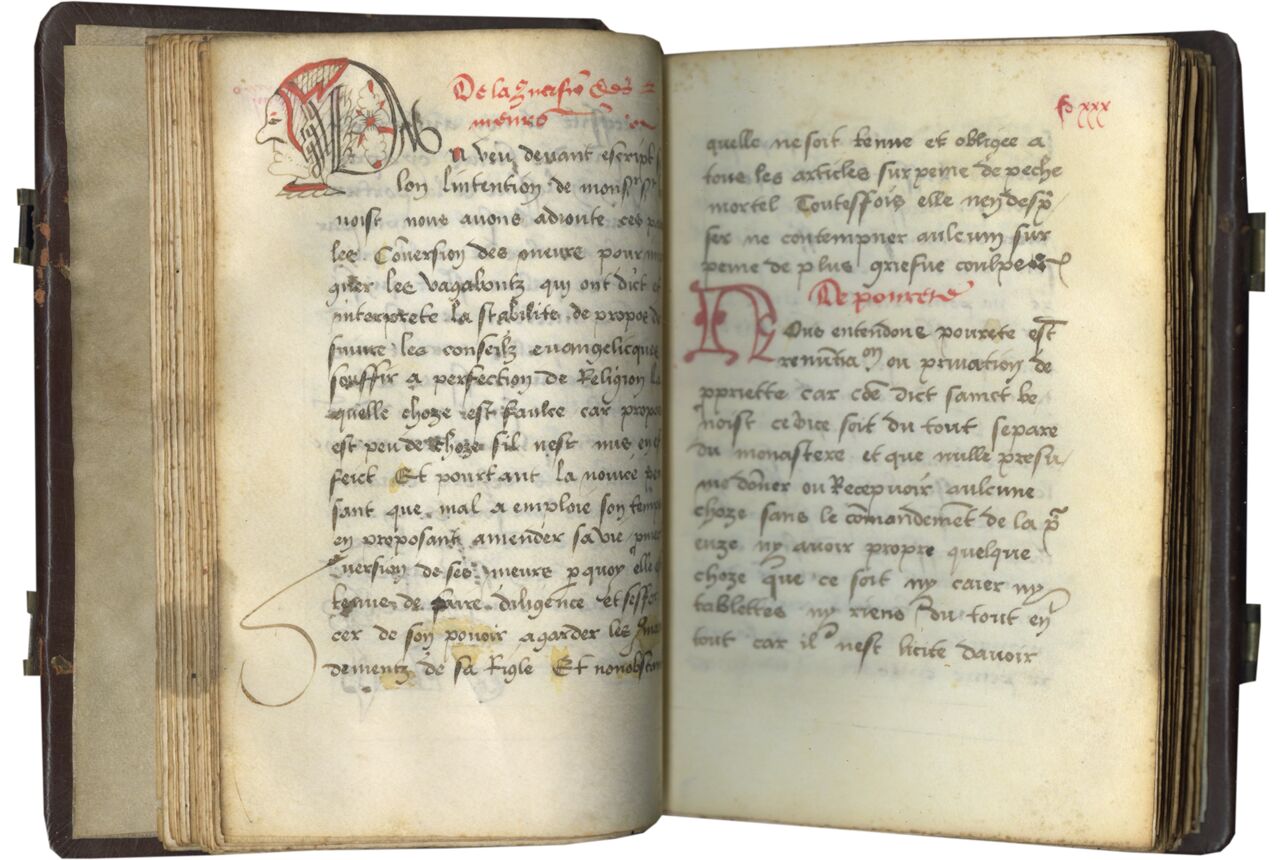 De la Conversion des
meurs
On a veu devant escript se
lon lintention de monsr st
noist nous avons adioute ces pa
les Conversion des meurs pour
les vagabontz qui ont dict et
interprete la stabilite de propos de
suivre les conseilz evangelicques
souffir a perfection de Religion la
quelle choze est faulce car propos
est peu de choze sil nest mis en ef
feict Et pourtant la novice pen
sant que mal a emploie son temps
en proposant amender sa vie
version de ses meurs pquoy elle est
tenue de faire diligence et seffor
cer de son povoir a garder les
dementz de sa Rigle Et nonobstant
fo xxx
quelle ne soit tenue et obligee a
tous les articles sur peine de peche
mortel Touteffois elle nen despri
ser ne contempner aulcun sur
peine de plus griefve coulpe
De povrete
Nous entendons povrete est
renūtiaon ou privation de
ppriette car cōe dict sainct be
noist ce vice soit du tout separe
du monastere et que nulle presu
me dōner ou Recepvoir aulcune
choze sans le cōmandemēt de la pri
euze ny avoir propre quelque
choze que ce soit ny caier ny
tablettes ny riens du tout en
tout car il nest licite davoir